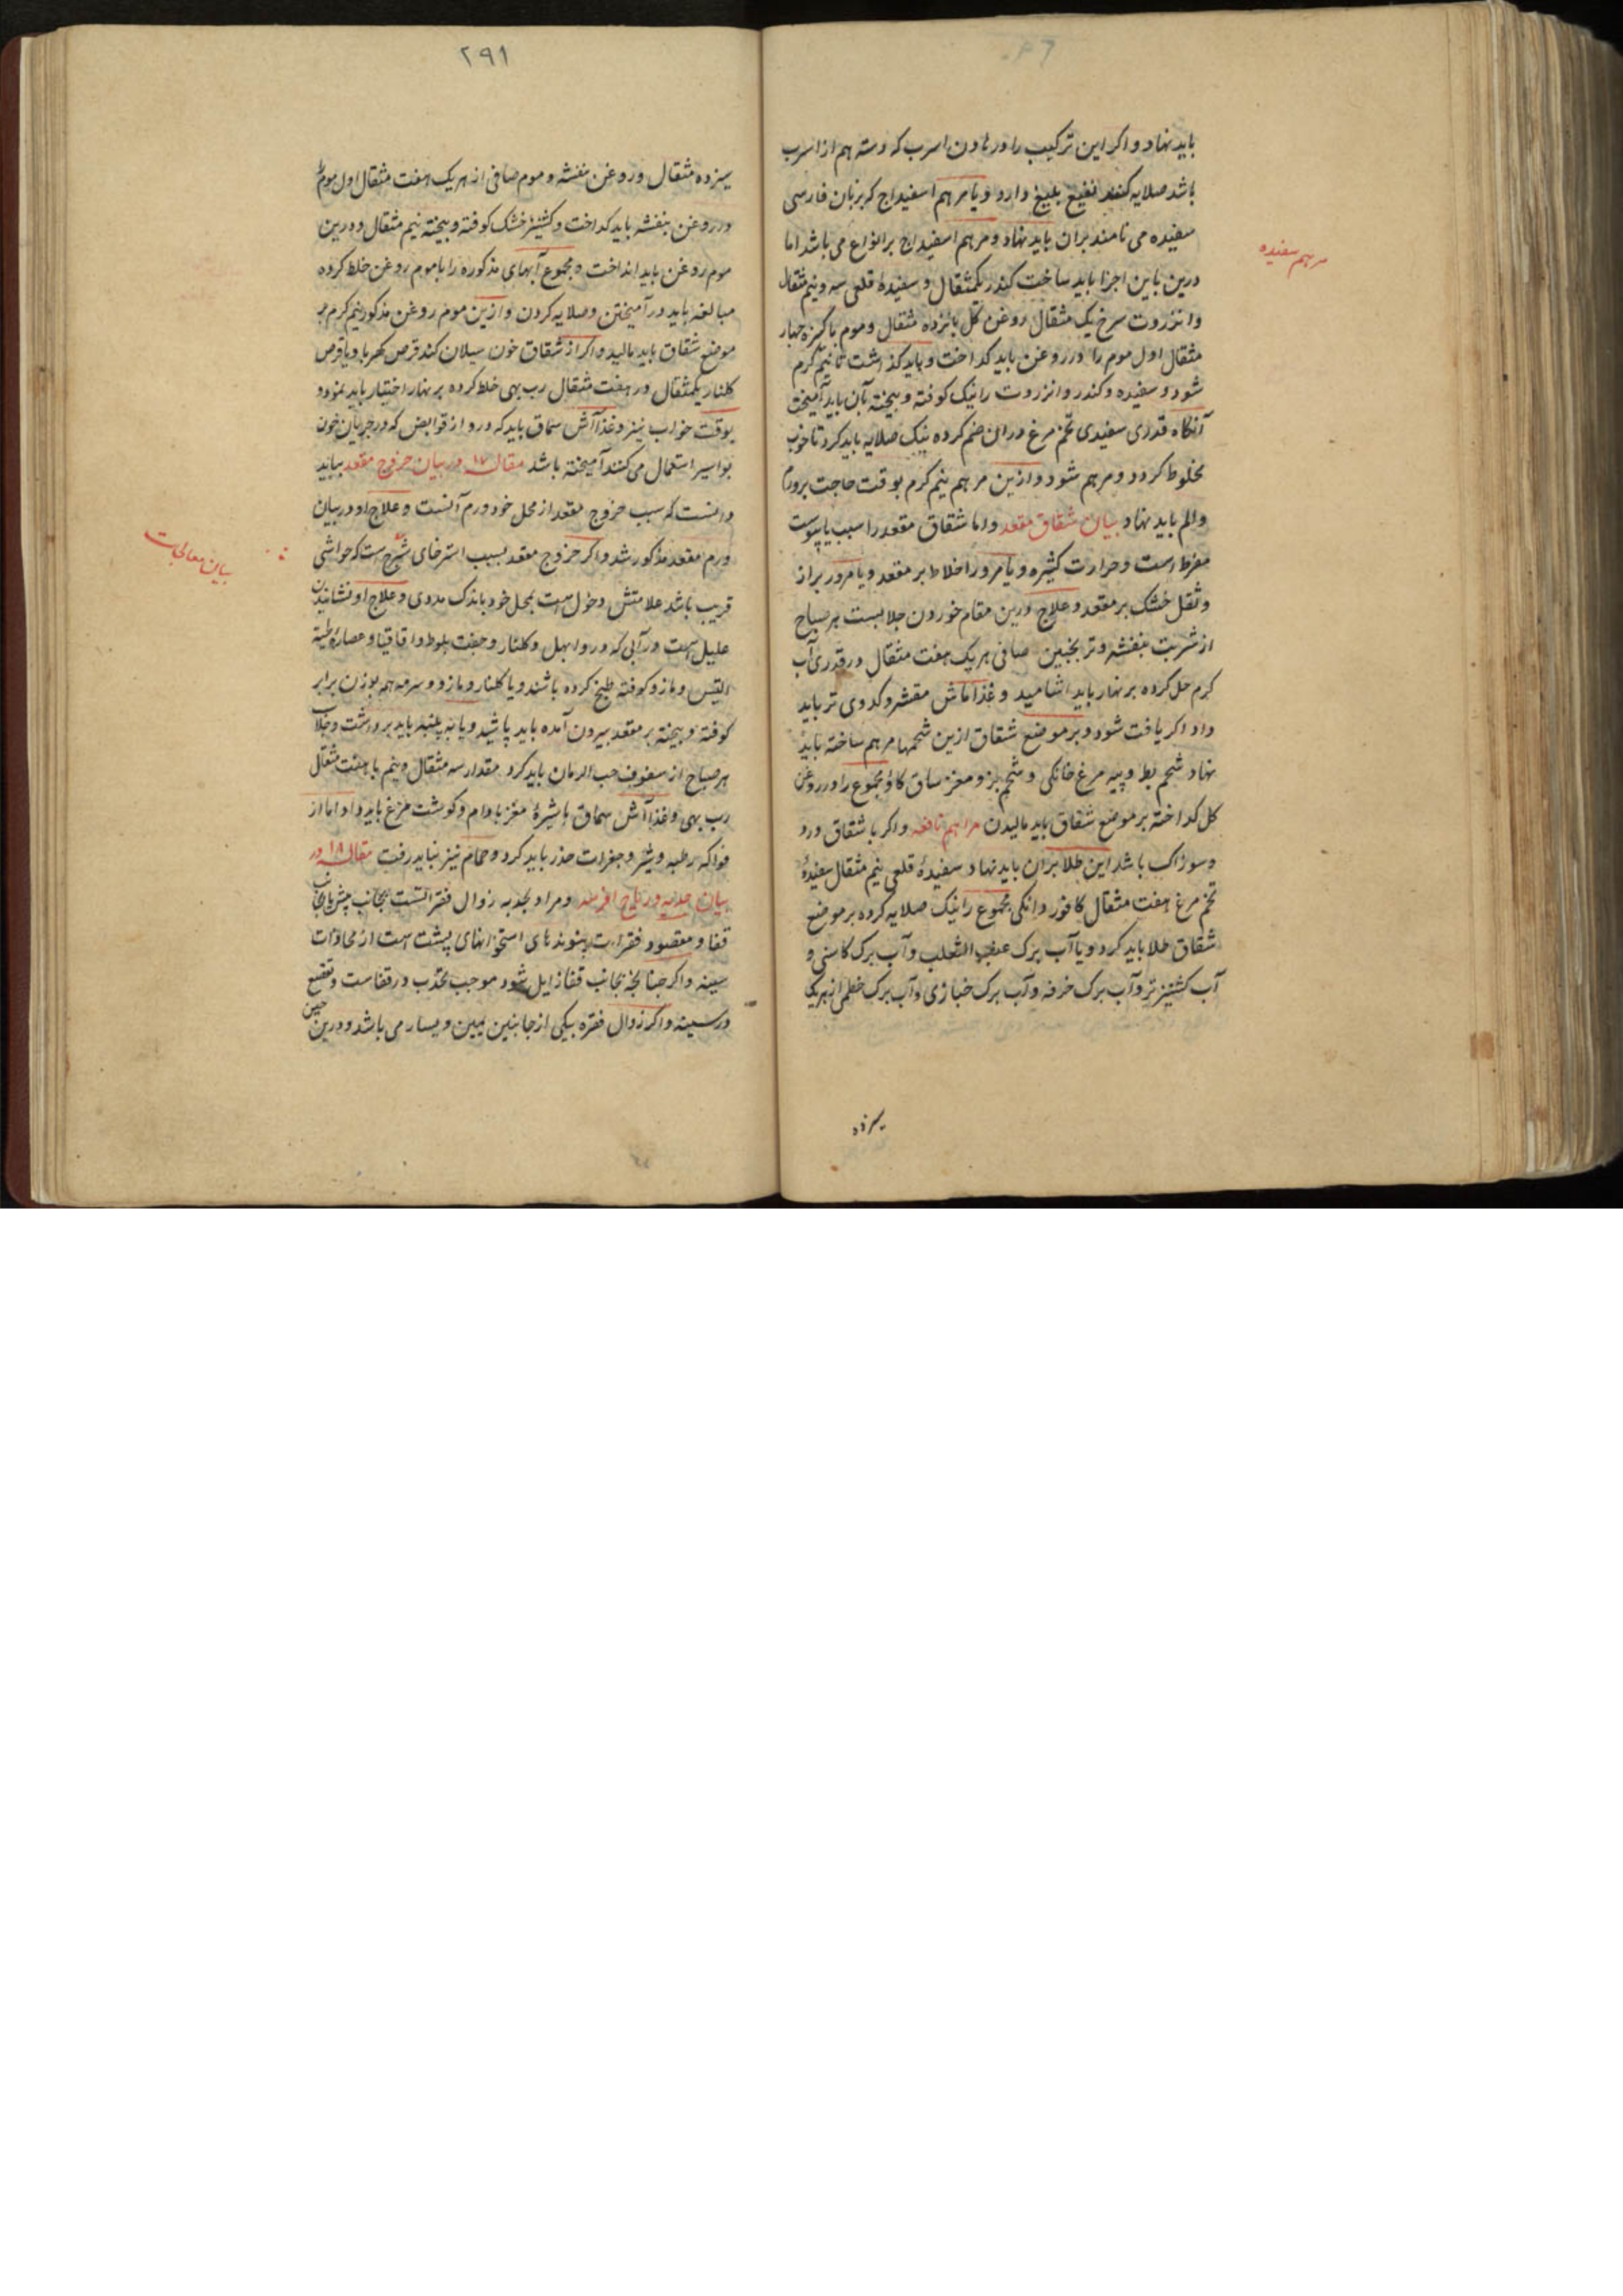 باید نهاد و اکر این ترکیب را در هاون اسرب که دسته هم از اسرب
باشد صلایه کنند نفیع بلیغ دارد و یا مرهم اسفیداج که بزبان فارسی
سفیده می نامند بران باید نهاد و مرهم اسفیداج بر انواع می باشد اما
مرهم سفیده
درین باین اجزا باید ساخت کندر یکمثقال و سفیدهٔ قلعی سه و نیم مثقال
و انزروت سرخ یک مثقال روغن کل پانزده مثقال و موم پاکیزه چهار
مثقال اول موم را در روغن باید کداخت و باید کذاشت تا نیم کرم
شود و سفیده و کندر و انزروت را نیک کوفته و بیخته بآن باید آمیخت
آنکاه قدری سفیدی تخم مرغ دران ضم کرده نیک صلایه باید کرد تا خوب
مخلوط کردد و مرهم شود و ازین مرهم نیم کرم بوقت حاجت بر ورم
و الم باید نهاد بیان شقاق مقعد و اما شقاق مقعد را سبب یا یبوست
مفرط است و حرارت کثیره و یا مرور اخلاط بر مقعد و یا مرور براز
و ثفل خشک بر مقعد و علاج درین مقام خوردن جلابست هر صباح
از شربت بنفشه و ترنجبین صافی هر یک هفت مثقال در قدری آب
کرم حل کرده بر نهار باید اشامید و غذا ماش مقشر و کدوی تر باید
داد اکر یافت شود و بر موضع شقاق ازین شحمها مرهم ساخته باید
نهاد شحم بط و پیه مرغ خانکی و شحم بز و مغز ساق کاو مجموع را در روغن
کل کداخته بر موضع شقاق باید مالیدن مراهم نافعه و اکر با شقاق درد
و سوزاک باشد این طلا بران باید نهاد سفیدهٔ قلعی نیم مثقال سفیدهٔ
تخم مرغ هفت مثقال کافور دانکی مجموع را نیک صلایه کرده بر موضع
شقاق طلا باید کرد و یا آب برک عنب الثعلب و آب برک کاسنی و
آب کشنیز تر و آب برک خرفه و آب برک خبازی و آب برک خطمی از هر یک
سیزده
۲۹۱
سیزده مثقال و روغن بنفشه و موم صافی از هر یک هفت مثقال اول موم را
در روغن بنفشه باید کداخت و کشنیز خشک کوفته و بیخته نیم مثقال درین
موم روغن باید انداخت و مجموع آبهای مذکوره را با موم روغن خلط کرده
مبالغه باید در آمیختن و صلایه کردن و ازین موم روغن مذکور نیم کرم بر
موضع شقاق باید مالید و اکر از شقاق خون سیلان کند قرص کهربا و یا قرص
کلنار یکمثقال در هفت مثقال رب بهی خلط کرده بر نهار اختیار باید نمود و
بوقت خواب نیز و غذا آش سماق باید که درو از قوابض که در جریان خون
بواسیر استعمال می کنند آمیخته باشد مقاله ۱۷ در بیان خروج مقعد بباید
دانست که سبب خروج مقعد از محل خود ورم آنست و علاج او در بیان
ورم مقعد مذکور شد و اکر خروج مقعد بسبب استرخای شرج است که حواشی
بیان معالجات
قریب باشد علامتش دخول است بمحل خود باندک مددی و علاج او نشانیدن
علیل است در آبی که درو ابهل و کلنار و جفت بلوط و اقاقیا و عصارهٔ لحیة
التیس و مازو کوفته طبخ کرده باشند و یا کلنار و مازو و سرمه همه بوزن برابر
کوفته و بیخته بر مقعد بیرون آمده باید پاشید و یا به پنبه باید برداشت و جلاب
هر صباح از سفوف حب الرمان باید کرد مقدار سه مثقال و نیم با هفت مثقال
رب بهی و غذا آش سماق با شیرهٔ مغز بادام و کوشت مرغ باید داد اما از
فواکه رطبه و شیر و جغرات حذر باید کرد و حمام نیز نباید رفت مقاله ۱۸ در
بیان حدبه و ریاح افرسه و مراد بحدبه زوال فقراتست بجانب پیش یا بجانب
قفا و مقصود فقرات پیوندهای استخوانهای پشت است از محاذات
سینه و اکر چنانچه بجانب قفا زایل شود موجب تحدب در قفاست و تقعیر
در سینه و اکر زوال فقره بیکی از جانبین یمین و یسار می باشد و درین حین